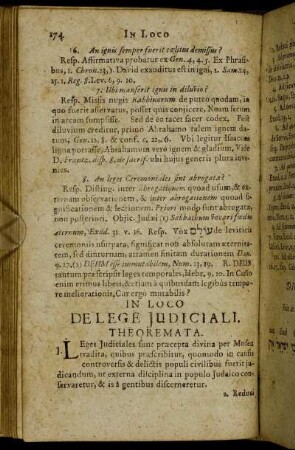 174 IN LOCO
6. An ignis semper fuerit cœlitus demissus?
Resp. Affirmativa probatur ex Gen. 4, 4. 5. Ex Phrasi
bus, 1. Chron. 21, David exauditus est in igni, 1. Sam. 24,
25. 1. Reg. 8. Lev. 6, 9. 10.
7. Ubi manserit ignis in diluvio?
Resp. Missis nugis Rabbinorum de puteo quodam, in
quo fuerit asservatus, posset quis conjicere, Noam secum
in arcam sumpsisse. Sed de eo tacet sacer codex, Post
diluvium creditur, primo Abrahamo talem ignem da-
tum, Gen. 15, & conf. c. 22, 6. Ubi legitur Isaacus
lignaportasse, Abrahamum vero ignem & gladium, Vide
D. Frantz. disp. 8. de sacrif. ubi hujus generis plura inve-
nies.
8. An leges Ceremoniales sint abrogatæ?
Resp. Disting. inter abrogationem quoad usum, & ex-
ternam observationem, & inter abrogationem quoad si-
gnificationem & lectionem. Priori modo sunt abrogatæ,
non posteriori. Objic. Judæi (1) Sabbathum vocari fœdus
æternum, Exod. 31. v. 16. Resp. Vox עולם de leviticis
ceremoniis usurpata, significat non absolutam æternita-
tem, sed diuturnam, attamen finitam durationem Dan.
9. 27. (2) DEUM esse immutabilem, Num. 23, 19. R. DEUS
tantum præscripsit leges temporales, Hebr. 9, 10. In Casto
enim erimus liberi, & etiam à quibusdam legibus tempo-
re meliorationis, Cur ergo mutabilis?
IN LOCO
DE LEGE JUDICIALI.
THEOREMATA.
1. LEges Judiciales sunt præcepta divina per Mosen
tradita, quibus præscribitur, quomodo in causis
controversis & delictis populi civilibus fuerit ju-
dicandum, ut externa disciplina in populo Judaico con-
servaretur, & is à gentibus discerneretur.
2. Reduci